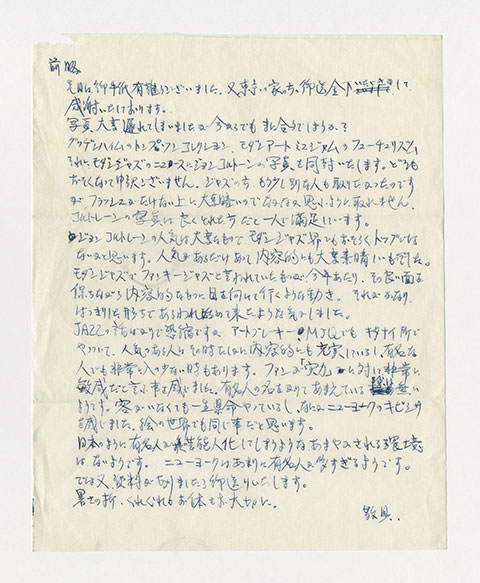 前略
先日は御手紙有難うございました。又東京の家の方へ御送金下さいまして
感謝いたしております。
写真大変遅れてしまいましたが今からでもまに合うでしょうか?
グッゲンハイムのトンプソンコレクション、モダンアートミュージアムのフューチュリズム、
それにモダンジャズのニュースにジョンコルトレーンの写真を同封いたします。どうも
おそくなって申訳ございません。ジャズの方、もう少し別な人も取りたかったのです
が フラッシュがたけない上に大変暗いのでなかなか思ふように取れません。
コルトレーンの写真は良くとれた方だと一人で満足しています。
ジョンコルトレーンの人気は大変なもので モダンジャズ界でもおそらくトップではな
ないかと思います。人気があるだけあって内容的にも大変素晴しいものでした。
モダンジャズでファンキージャズと言われていたものが今年あたり、その良い面を
保ちながら内容的なものに目を向けて行くような動き。それがかなり
はっきりした形であらわれ始めて来たような気がしました。
JAZZの話ばかりで恐縮ですが アートブレーキー、MJQでもキタナイ所で
やっていて、人気のある人はその時たしかに内容的にも充実しているし、有名な
人でも非常に入りの少ない時もあります。ファンが実力に対して非常に
敏感だと言う事を感じました。有名人の名前だけであまえている事は無い
ようです。客がいなくても一生懸命やっているし、なにかニューヨークのキビシサ
を感じました。絵の世界でも同じ事だと思います。
日本のように有名人が芸能人化してしまうようなあまやかされる環境
はないようです。 ニューヨークはあまりに有名人が多すぎるようです。
では又、資料がありましたら御送りいたします。
暑さの折、くれぐれもお体を大切に。
敬具.